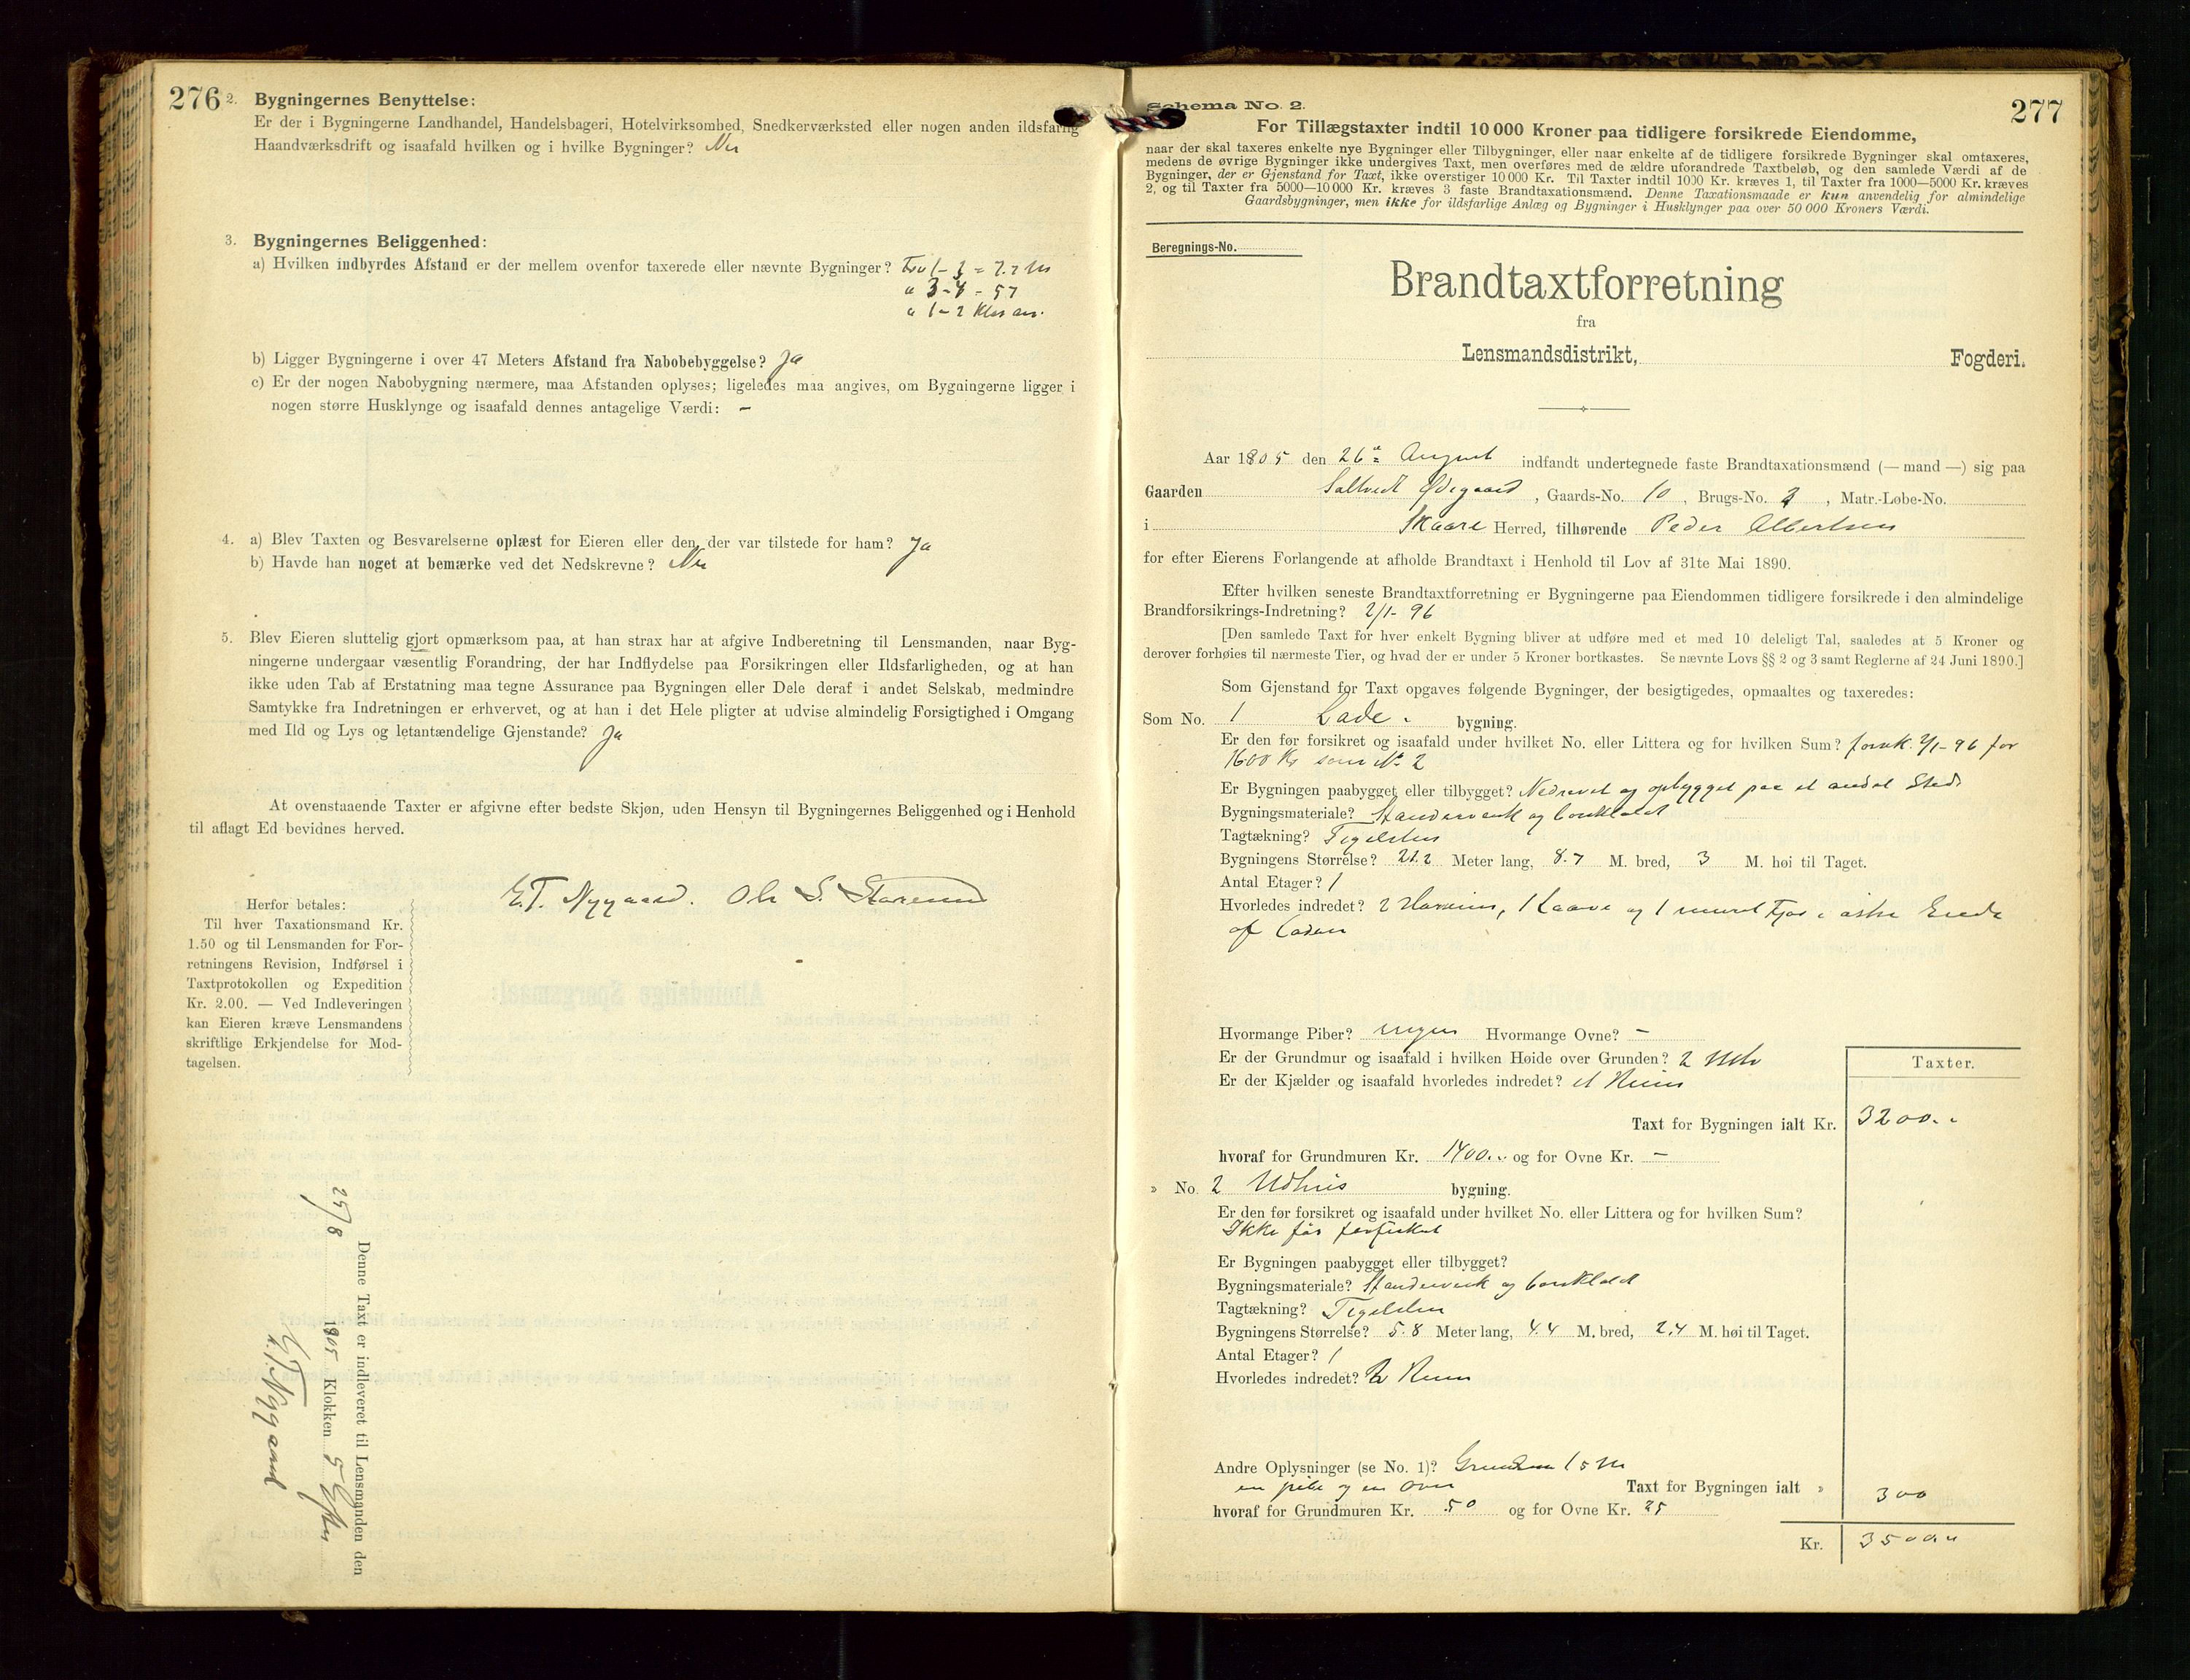 276
2. Bygningernes Benyttelse:
Er der i Bygningerne Landhandel, Handelsbageri, Hotelvirksomhed, Snedkerværksted eller nogen anden ildsfarlig
Haandværksdrift og isaafald hvilken og i hvilke Bygninger? Nei
3. Bygningernes Beliggenhed:
a) Hvilken indbyrdes Afstand er der mellem ovenfor taxerede eller nævnte Bygninger? Fra 1 - 3 = 7.2 M
" 3 - 4 - 57
" 1 - 2
b) Ligger Bygningerne i over 47 Meters Afstand fra Nabobebyggelse? Ja
c) Er der nogen Nabobygning nærmere, maa Afstanden oplyses; ligeledes maa angives, om Bygningerne ligger i
nogen større Husklynge og isaafald dennes antagelige Værdi: -
4. a) Blev Taxten og Besvarelserne oplæst for Eieren eller den, der var tilstede for ham? Ja
b) Havde han noget at bemærke ved det Nedskrevne? Nei
5. Blev Eieren sluttelig gjort opmærksom paa, at han strax har at afgive Indberetning til Lensmanden, naar Byg-
ningerne undergaar væsentlig Forandring, der har Indflydelse paa Forsikringen eller Ildsfarligheden, og at han
ikke uden Tab af Erstatning maa tegne Assurance paa Bygningen eller Dele deraf i andet Selskab, medmindre
Samtykke fra Indretningen er erhvervet, og at han i det Hele pligter at udvise almindelig Forsigtighed i Omgang
med Ild og Lys og letantændelige Gjenstande? Ja
At ovenstaaende Taxter er afgivne efter bedste Skjøn, uden Hensyn til Bygningernes Beliggenhed og i Henhold
til aflagt Ed bevidnes herved.
E. T. Nygaard. Ole S.
Herfor betales:
Til hver Taxationsmand Kr.
1.50 og til Lensmanden for For-
retningens Revision, Indførsel i
Taxtprotokollen og Expedition
Kr. 2.00. — Ved Indleveringen
kan Eieren kræve Lensmandens
skriftlige Erkjendelse for Mod-
tagelsen.
Denne Taxt er indleveret til Lensmanden den
29/8 1905 Klokken 5 Efter
E. T. Nygaard
277
Schema No. 2.
For Tillægstaxter indtil 10 000 Kroner paa tidligere forsikrede Eiendomme,
naar der skal taxeres enkelte nye Bygninger eller Tilbygninger, eller naar enkelte af de tidligere forsikrede Bygninger skal omtaxeres,
medens de øvrige Bygninger ikke undergives Taxt, men overføres med de ældre uforandrede Taxtbeløb, og den samlede Værdi af de
Bygninger, der er Gjenstand for Taxt, ikke overstiger 10 000 Kr. Til Taxter indtil 1000 Kr. kræves 1, til Taxter fra 1000—5000 Kr. kræves
2, og til Taxter fra 5000—10 000 Kr. kræves 3 faste Brandtaxationsmænd. Denne Taxationsmaade er kun anvendelig for almindelige
Gaardsbygninger, men ikke for ildsfarlige Anlæg og Bygninger i Husklynger paa over 50 000 Kroners Værdi.
Beregnings-No.
Brandtaxtforretning
fra
Lensmandsdistrikt, Fogderi.
Aar 1905 den 26de August indfandt undertegnede faste Brandtaxationsmænd (— mand —) sig paa
Gaarden Saltvedt Ødegaard, Gaards-No. 10, Brugs-No. 2, Matr.-Løbe-No.
i Skaare Herred, tilhørende Peder Albertsen
for efter Eierens Forlangende at afholde Brandtaxt i Henhold til Lov af 31te Mai 1890.
Efter hvilken seneste Brandtaxtforretning er Bygningerne paa Eiendommen tidligere forsikrede i den almindelige
Brandforsikrings-Indretning? 2/1- 96
[Den samlede Taxt for hver enkelt Bygning bliver at udføre med et med 10 deleligt Tal, saaledes at 5 Kroner og
derover forhøies til nærmeste Tier, og hvad der er under 5 Kroner bortkastes. Se nævnte Lovs §§ 2 og 3 samt Reglerne af 24 Juni 1890.]
Som Gjenstand for Taxt opgaves følgende Bygninger, der besigtigedes, opmaaltes og taxeredes:
Som No. 1 Lade- bygning.
Er den før forsikret og isaafald under hvilket No. eller Littera og for hvilken Sum? forsik. 2/1-96 for
1600 Kr som No 2
Er Bygningen paabygget eller tilbygget? Nedrevet og opbygget paa et andet Sted
Bygningsmateriale? Standerverk og bordklædt
Tagtækning? Tegelsten
Bygningens Størrelse? 21.2 Meter lang, 8.7 M. bred, 3 M. høi til Taget.
Antal Etager? 1
Hvorledes indredet? 2 Høirum, 1 Laave og 1 muret Fjøs i østre Ende
af Laden
Hvormange Piber? ingen Hvormange Ovne? -
Er der Grundmur og isaafald i hvilken Høide over Grunden? 2 Mtr
Er der Kjælder og isaafald hvorledes indredet? et Rum
Taxter.
Taxt for Bygningen ialt Kr. 3200.-
hvoraf for Grundmuren Kr. 1400.- og for Ovne Kr. -
» No. 2 Udhus bygning.
Er den før forsikret og isaafald under hvilket No. eller Littera og for hvilken Sum?
Ikke før forsikret
Er Bygningen paabygget eller tilbygget?
Bygningsmateriale? Standerverk og bordklædt
Tagtækning? Tegelsten
Bygningens Størrelse? 5.8 Meter lang, 4.4 M. bred, 2.4 M. høi til Taget.
Antal Etager? 1
Hvorledes indredet? 2 Rum
Andre Oplysninger (se No. 1)? Grundmur 1 5 M
en pibe og en Ovn Taxt for Bygningen ialt » 300
hvoraf for Grundmuren Kr. 50 og for Ovne Kr. 25
Kr. 3500.-